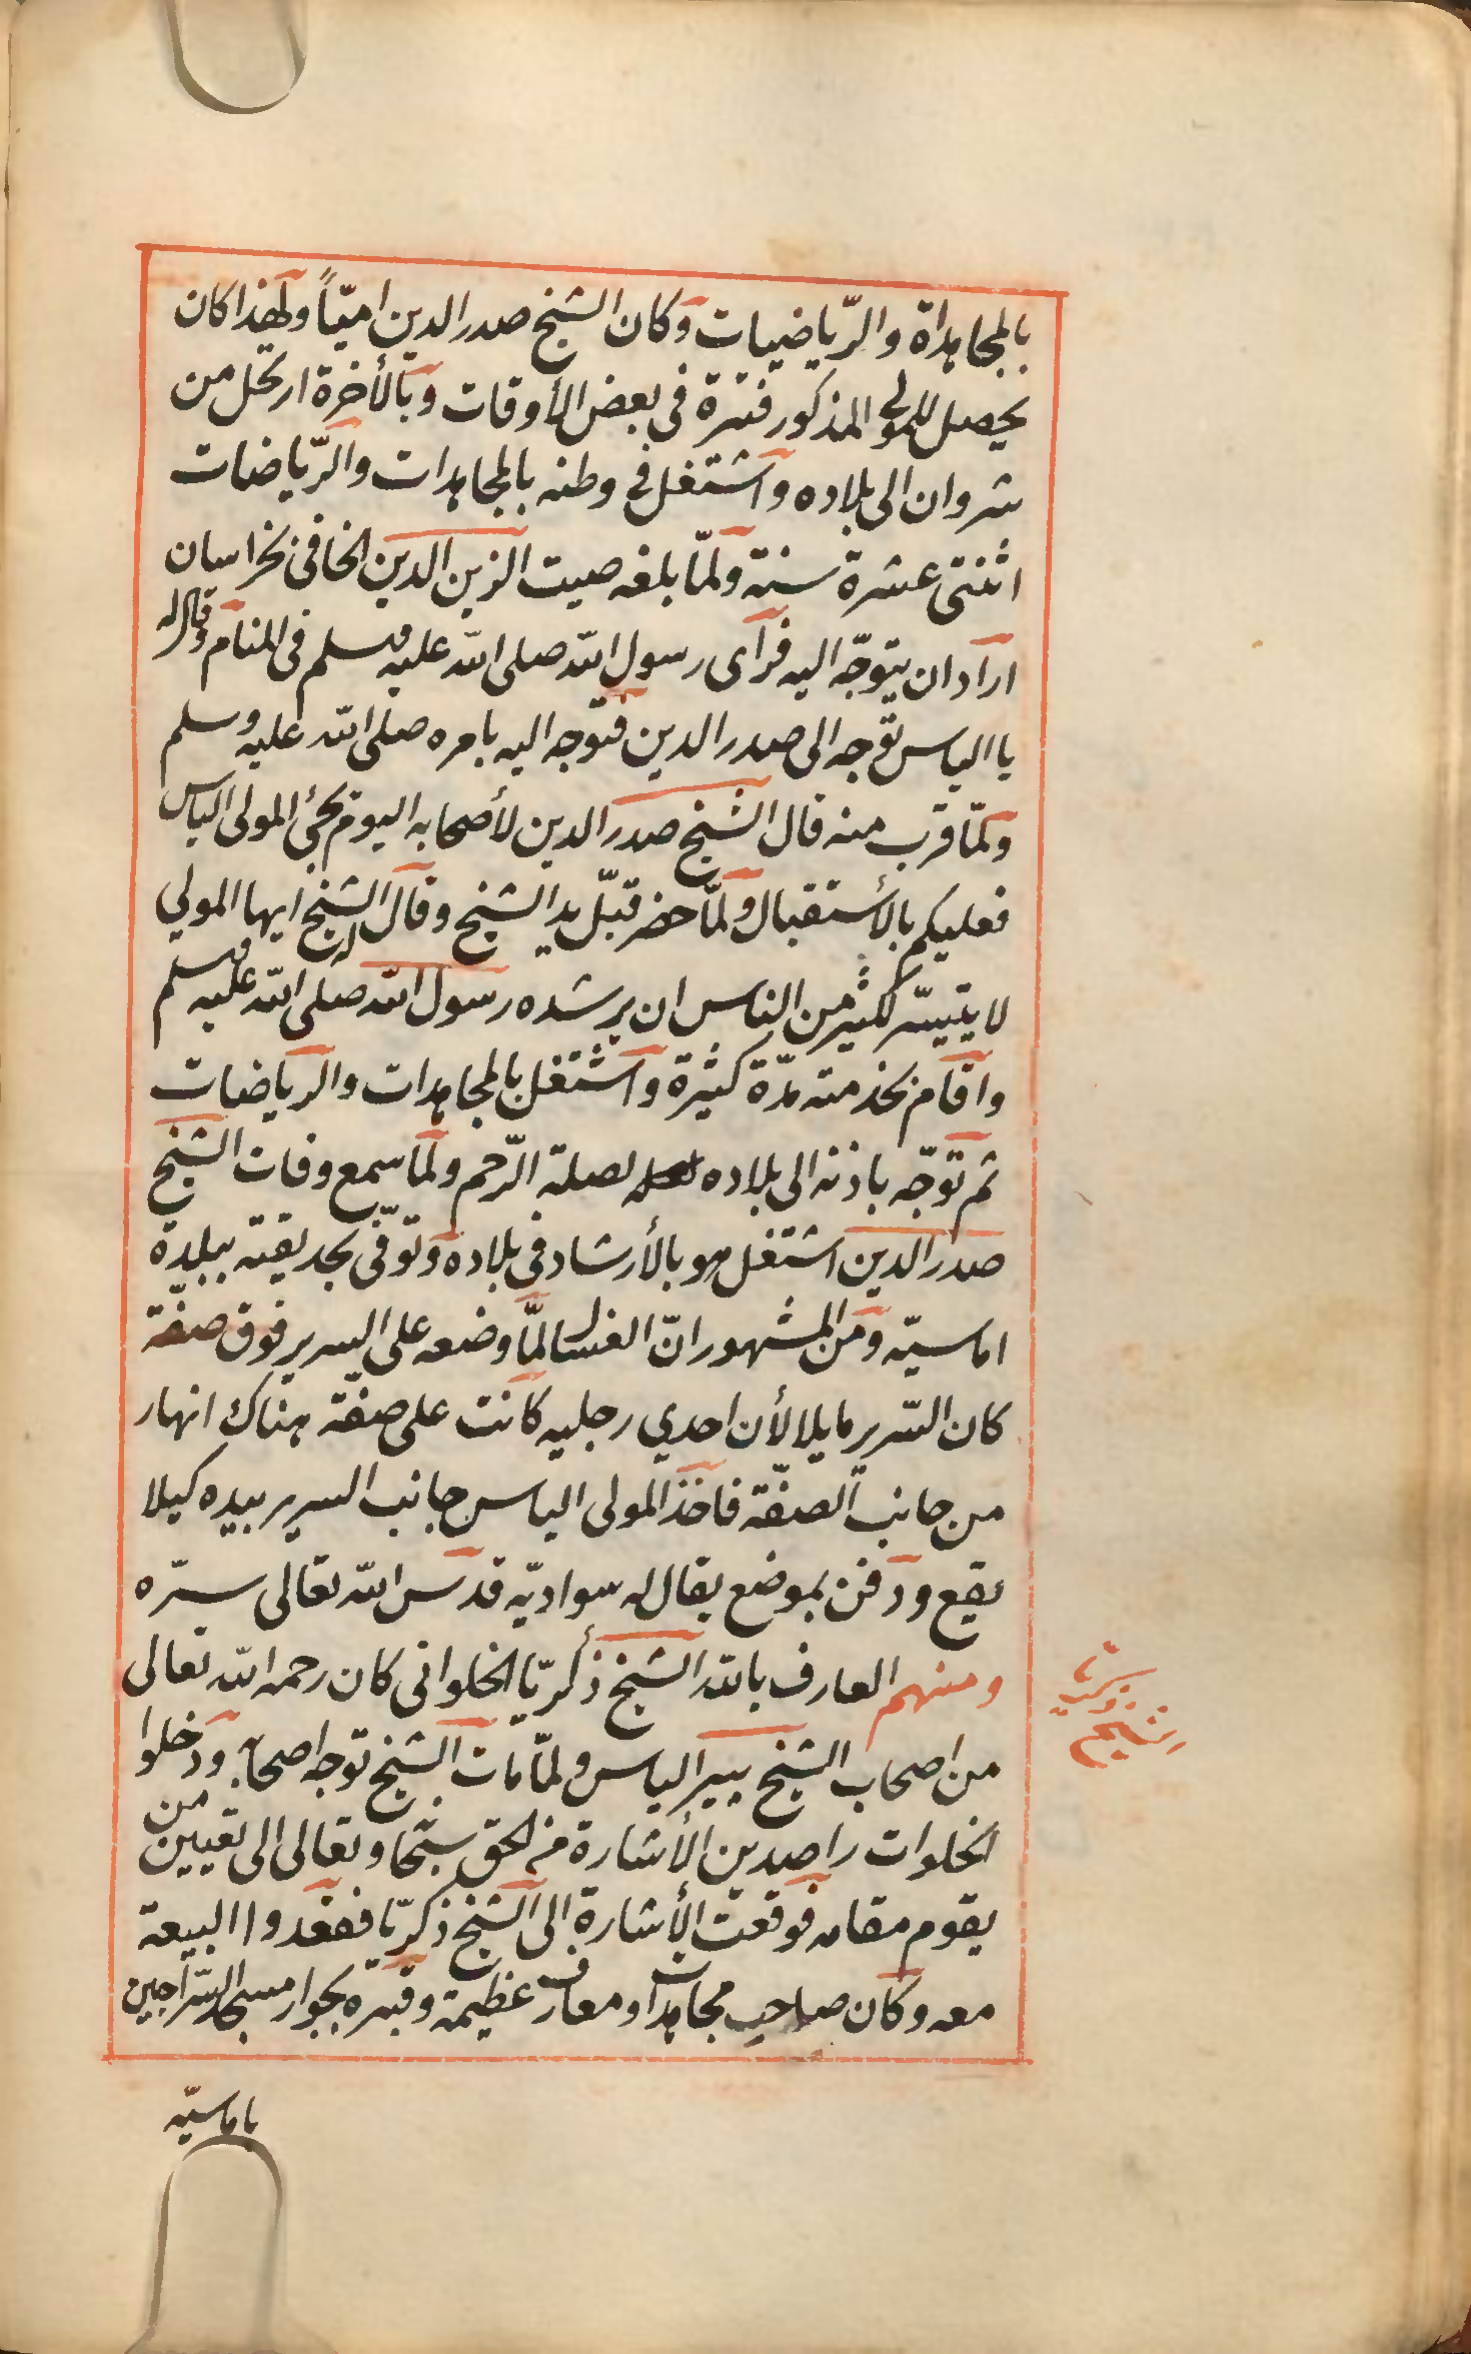 بالمجاهداة والرّياضيات وكان الشيخ صدر الدين اميّاً ولهذا كان
يحصل للمولى المذكور فترة فى بعض الأوقات وبالأخرة ارتحل من
شروان الى بلاده واشتغل فى وطنه بالمجاهدات والرّياضات
اثنتى عشرة سنة ولمّا بلغه صيت الزين الدين الخافى بخراسان
اراد ان يتوجّه اليه فرأى رسول الله صلى الله عليه وسلم فى المنام وقال له
يا الياس توجه الى صدر الدين فتوجه اليه بامره صلى الله عليه وسلم
ولمّا قرب منه قال الشيخ صدر الدين لأصحابه اليوم يجئ المولى الياس
فعليكم بالأستقبال ولمّا حضر قبّل يد الشيخ وقال له الشيخ ايها المولي
لا يتيسّر لكثير من الناس ان يرشده رسول الله صلى الله عليه وسلم
واقام بخدمته مدّة كثيرة واشتغل بالمجاهدات والرياضات
ثم توجّه باذنه الى بلاده لصلة الرّحم ولما سمع وفات الشيخ
صدر الدين اشتغل هو بالأرشاد فى بلاده وتوفّى بحديقته ببلدة
اماسيّه ومن المشهور انّ الغسال لمّا وضعه على السرير فوق صفّة
كان السّرير مايلا لأن احدي رجليه كانت على صفّة هناك انهار
من جانب الصفّة فاخذ المولى الياس جانب السرير بيده كيلا
يقع ودفن بموضع يقال له سواديّه قدس الله تعالى سرّه
ومنهم العارف بالله الشيخ ذكريّا الخلواتى كان رحمه الله تعالى
من اصحاب الشيخ پير الياس ولمّا مات الشيخ توجه اصحابه ودخلوا
الخلوات راصدين الأشارة من الحق سبحا وتعالى الى تعيين من
يقوم مقامه فوقعت الأشارة الى الشيخ ذكريّا فعقدوا البيعة
معه وكان صاحب مجاهدات ومعارف عظيمة وقبره بجوار مسجد السّراجين
باماسيّه